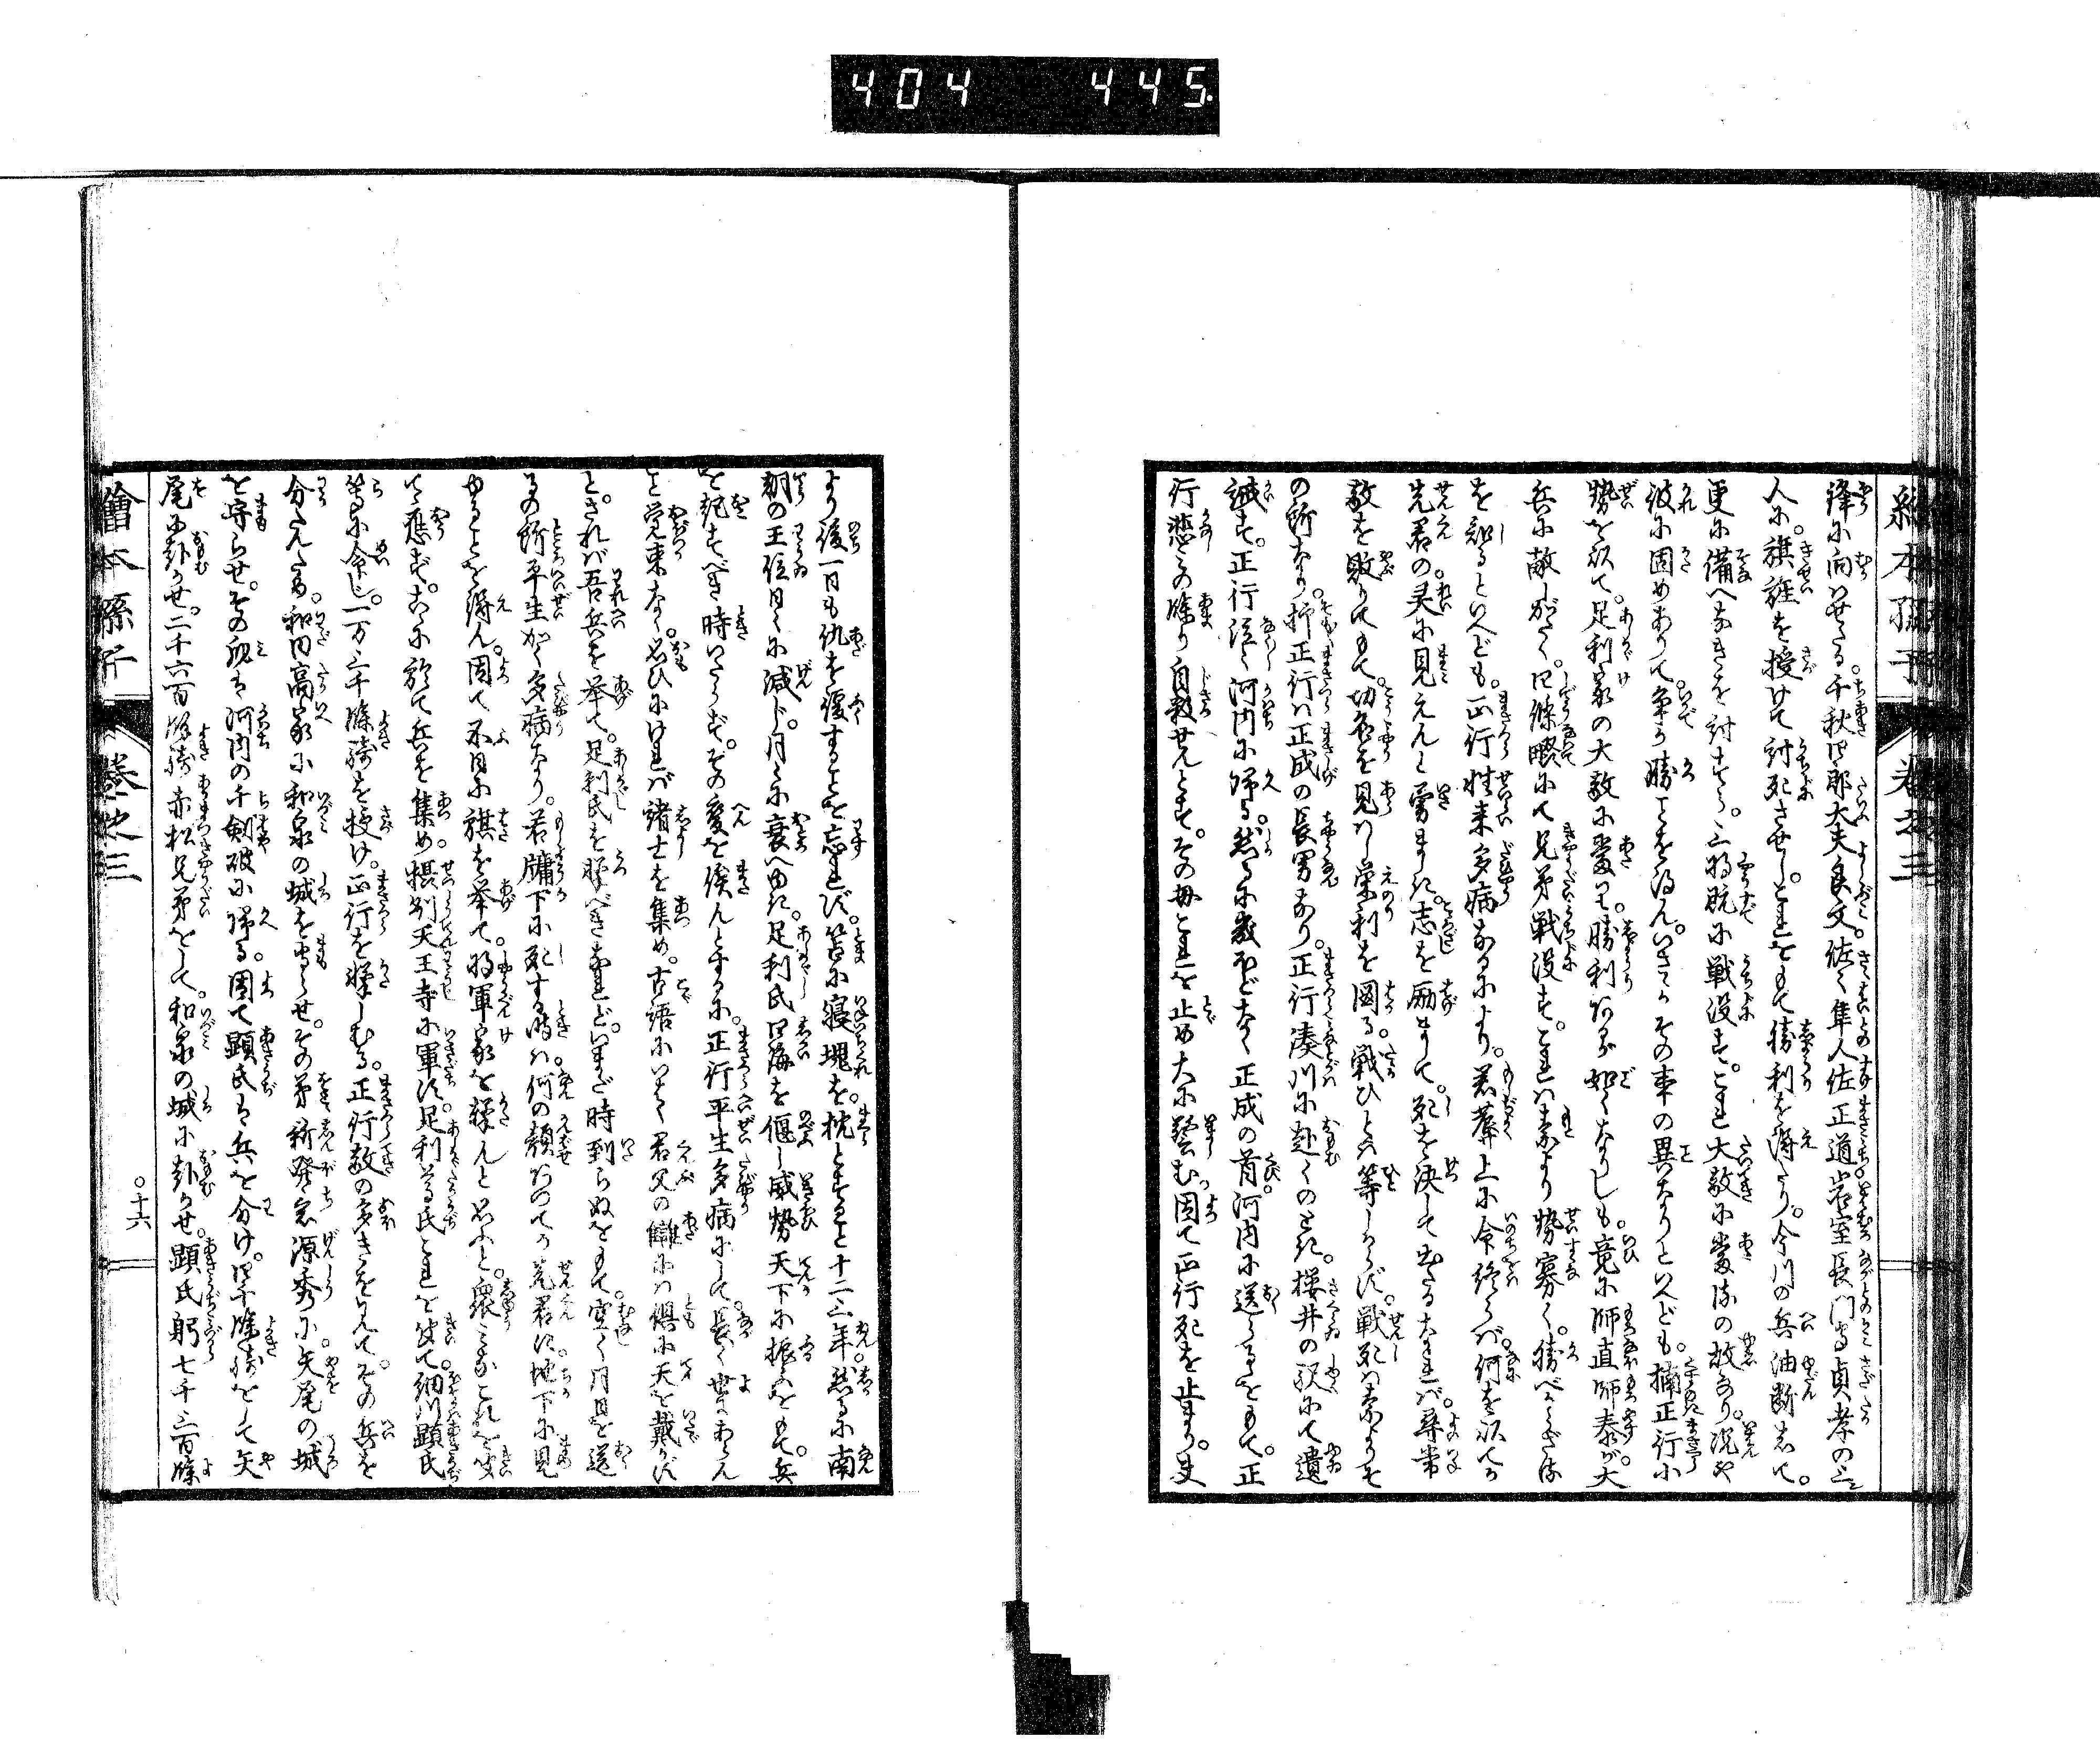 404 445
鋒に向はせたる。千秋四郎大夫良文。佐々隼人佐正道岩室長門守貞孝の三
人に。旗旌を授けて討死させし。これをもて勝利を得たり。今川の兵油断して。
更に備へなきを討せたり。三将既に戦没す。これ大敵に當るの故なり。况や
彼に固めありて。争か勝ことを得ん。いさゝかその事の異なりといへども。楠正行小
勢を以て。足利家の大敵に當て。勝利ある如くなりしも。竟に師直師泰が。大
兵に敵しがたく。四條畷にて兄弟戦没す。これは素より勢寡く。勝べからざる
を知るといへども。正行性来多病なるにより。若蓐上に命終らば。何を以てか
先君の灵に見えんと勇ます。志を励まして。死を决して出たるなれば。尋常
敵を敗りてもて。功名を見はし栄利を圖る。戦ひとは等しからず。戦死は素よりそ
の所なり。抑正行は正成の長男なり。正行湊川に赴くのとき。桜井の駅にて遺
誡す。正行泣々河内に帰る。然るに幾ほどなく正成の首河内に送らるをもて。正
行悲みの餘り自殺せんとす。その母これを止め大に誓む。因て正行死を止まり。夫
より後一日も仇を復することを忘れず。苫に寝塊を。枕とすること十二三年。然るに南
朝の王位日々に減じ。月々に衰へゆき。足利氏四海を偃し威勢天下に振ふをもて。兵
を起すべき時いたらず。その変を俟んとするに。正行平生多病にして。長く世にあらん
こと覚束なく。思ひにければ諸士を集め。古語にいはく君父の讎には倶に天を戴かず
と。されば吾兵を挙て。足利氏を撃べきなれど。いまだ時到らぬをもて。空く月日を送
るの所平生かく多病なり。若牖下に死する時は。何の顔ありてか先君に地下に見
ゆることを得ん。因て不日に旗を挙て。将軍家を撃んと思ふと。衆みなこれを聞
て應ず。こゝに於て兵を集め。摂州天王寺に軍す。足利尊氏これを聞て。細川顕氏
等に命じ。一万三千餘騎を授け。正行を撃しむる。正行敵の多きを見て。その兵を
分んため。和田高家に和泉の城を守らせ。その弟新発意源秀に。矢尾の城
を守らせ。その躬は河内の千剣破に帰る。因て顕氏は兵を分け。四千餘騎をして矢
尾に赴かせ。二千六百餘騎赤松兄弟をして。和泉の城に赴かせ。顕氏躬七千三百餘
繪本孫子 巻之三
〇十六